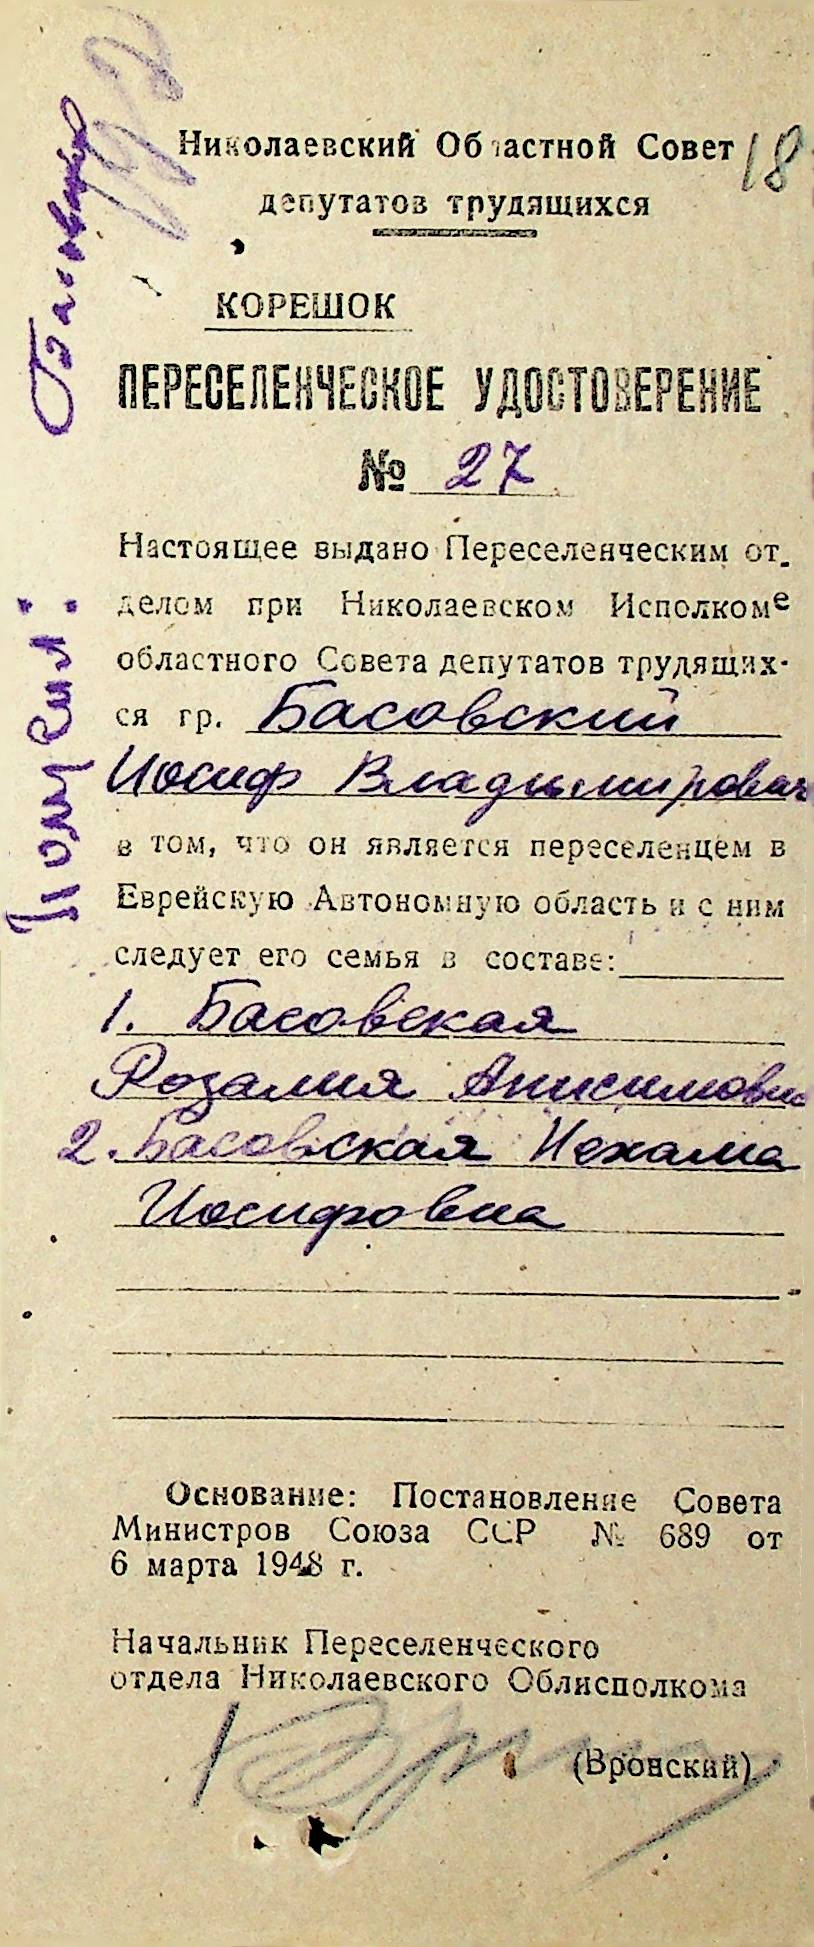 Николаевский Областной Совет
18
депутатов трудящихся
КОРЕШОК
ПЕРЕСЕЛЕНЧЕСКОЕ УДОСТОВЕРЕНИЕ
№ 27
Настоящее выдано Переселенческим от-
делом при Николаевском Исполкоме
областного Совета депутатов трудящих-
ся гр. Басовский
Иосиф Владимирович
в том, что он является переселенцем в
Еврейскую Автономную область и с ним
следует его семья в составе:
1. Басовская
Розалия Анисимовна
2. Басовская Нехама
Иосифовна
Основание: Постановление Совета
Министров Союза ССР № 689 от
6 марта 1948 г.
Начальник Переселенческого
отдела Николаевского Облисполкома
(Вронский)
Получил: Басовский